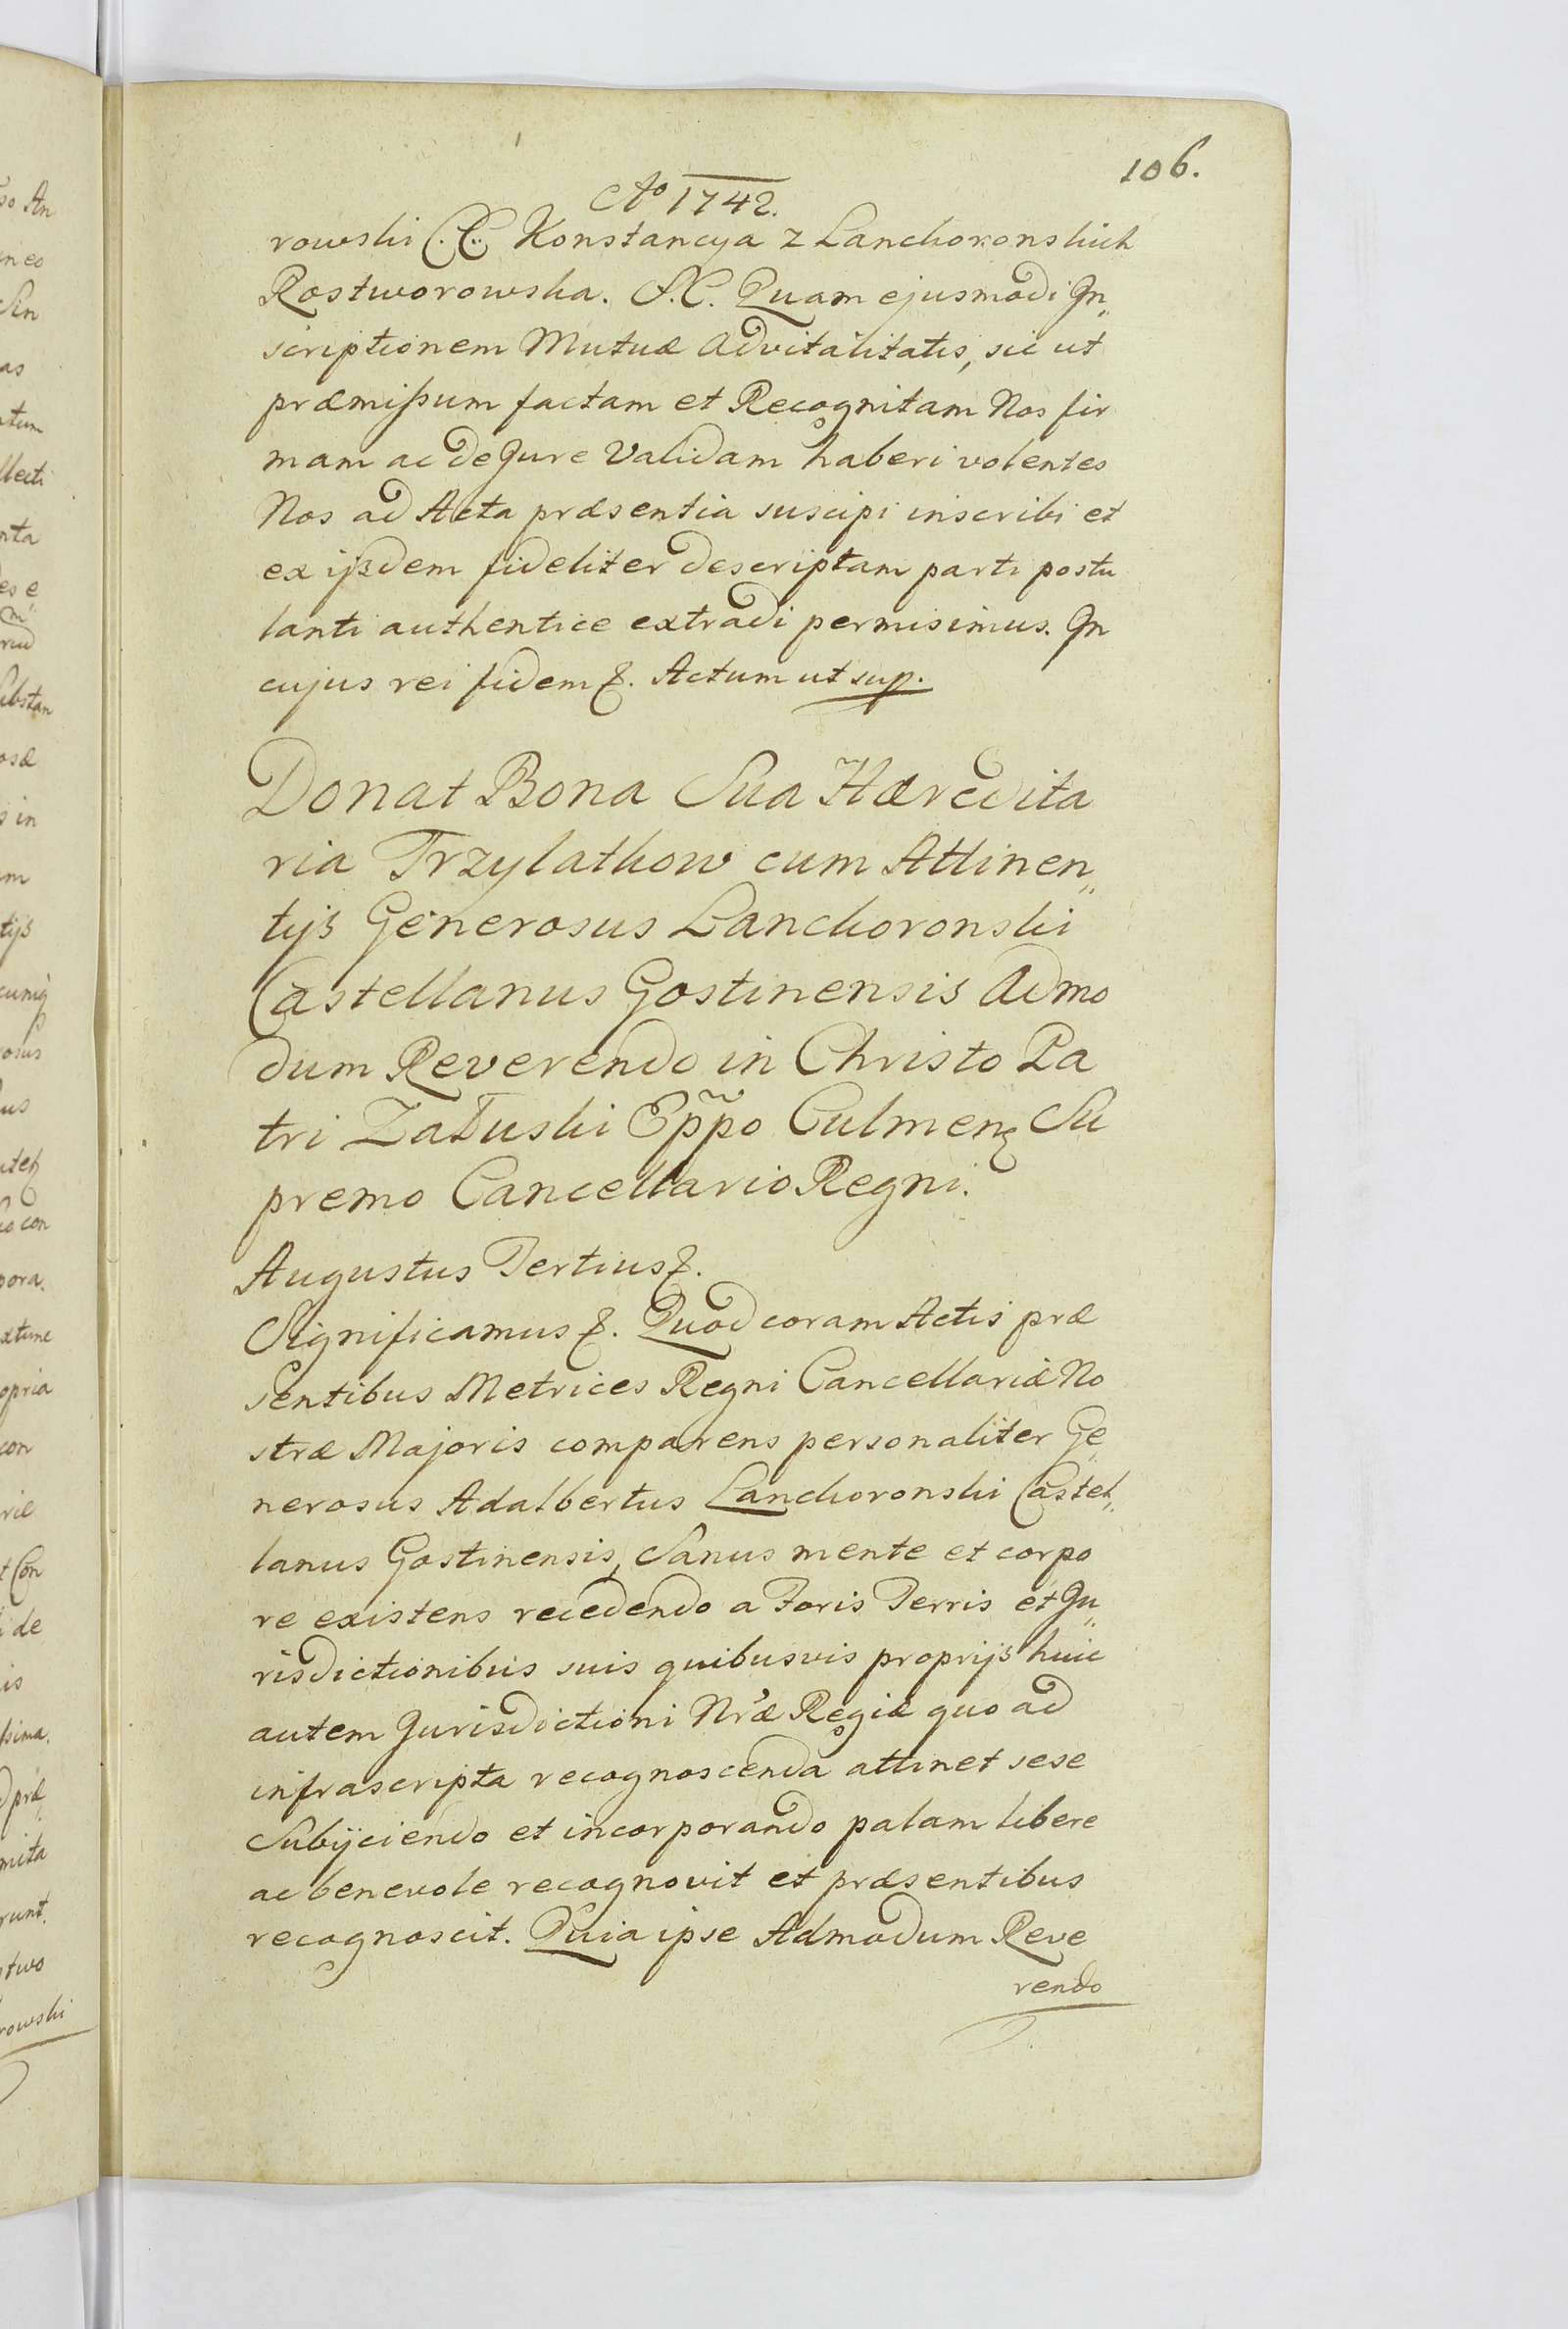 106.
Ao 1742.
rowski C.C. Konstancya z Lanckoronskich
Rostworowska. S.C. Quam ejusmodi In„
scriptionem Mutuæ Advitalitatis, sic ut
præmissum factam et Recognitam Nos fir
mam ac de Jure Validam haberi volentes
Nos ad Acta præsentia suscipi inscribi et
ex ijsdem fideliter descriptam parti postu
lanti authentice extradi permisimus. In
cujus rei fidem &. Actum ut sup.
Donat Bona Sua Hæredita
ria Trzylatkow cum Attinen„
tijs Generosus Lanckoronski
Castellanus Gostinensis Admo
dum Reverendo in Christo Pa
tri Załuski Eppo Culmen Su
premo Cancellario Regni.
Augustus Tertius &.
Significamus &. Quod coram Actis præ
sentibus Metrices Regni Cancellariæ No
stræ Majoris comparens personaliter Ge„
nerosus Adalbertus Lanckoronski Castel„
lanus Gostinensis, Sanus mente et corpo
re existens recedendo a Foris Terris et Ju„
risdictionibus suis quibusvis proprijs huic
autem Jurisdictioni Nræ Regiæ quo ad
infrascripta recognoscenda attinet sese
Subijciendo et incorporando palam libere
ac benevole recognovit et præsentibus
recognoscit. Quia ipse Admodum Reve
rendo